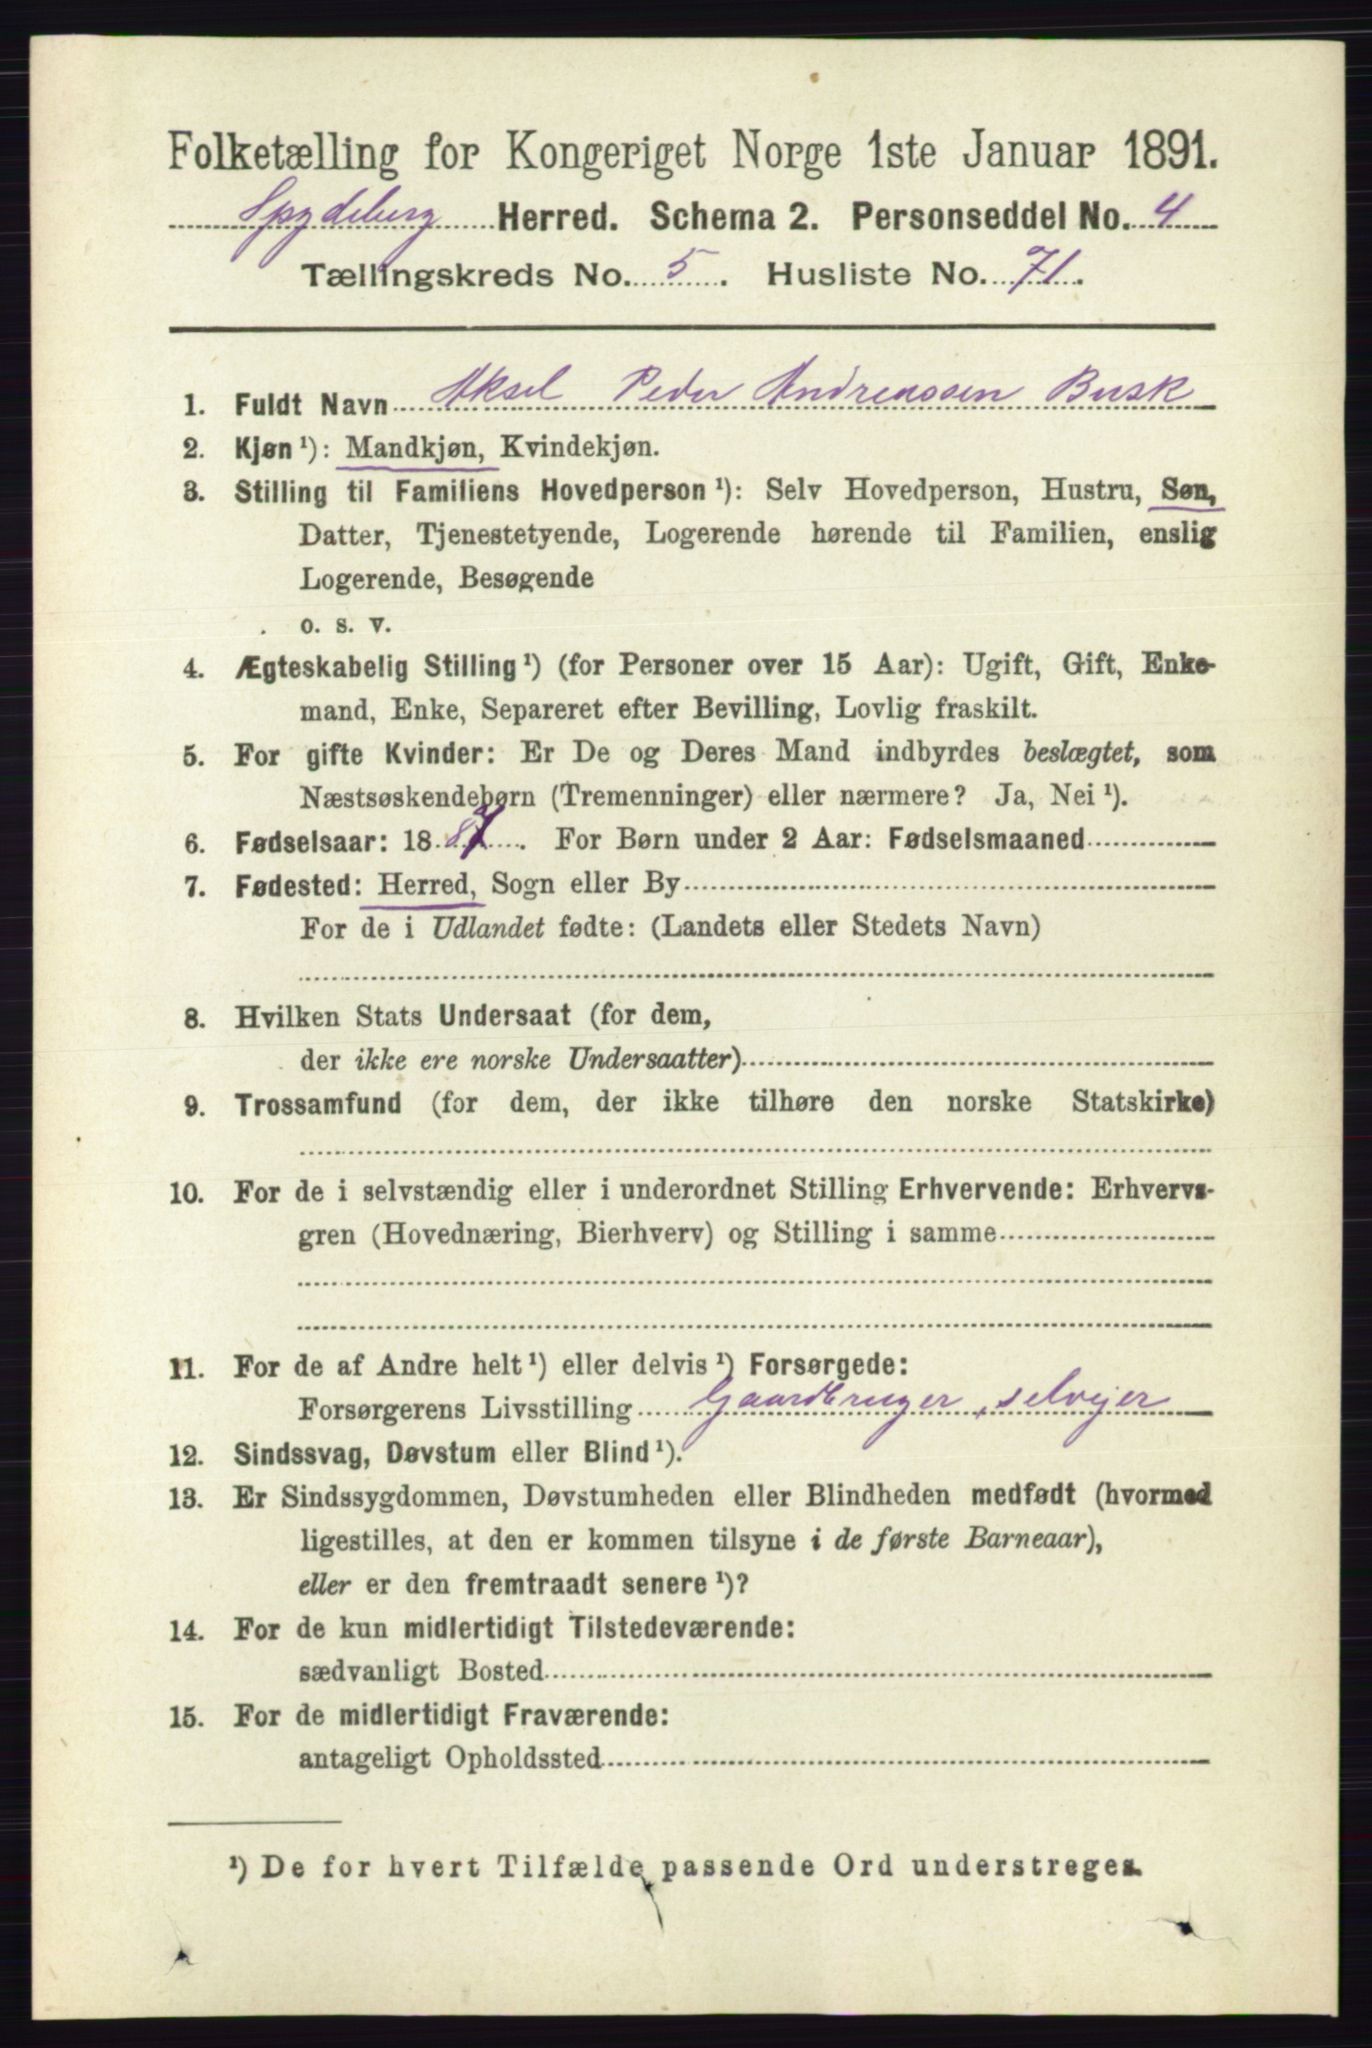 Folketælling for Kongeriget Norge 1ste Januar 1891.
Spydeberg Herred. Schema 2. Personseddel No. 4
Tællingskreds No. 5. Husliste No. 71.
1. Fuldt Navn Aksel Peder Andreassen Busk
2. Kjøn ¹): Mandkjøn, Kvindekjøn.
3. Stilling til Familiens Hovedperson ¹): Selv Hovedperson, Hustru, Søn,
Datter, Tjenestetyende, Logerende hørende til Familien, enslig
Logerende, Besøgende
o. s. v.
4. Ægteskabelig Stilling ¹) (for Personer over 15 Aar): Ugift, Gift, Enke-
mand, Enke, Separeret efter Bevilling, Lovlig fraskilt.
5. For gifte Kvinder: Er De og Deres Mand indbyrdes beslægtet, som
Næstsøskendebørn (Tremenninger) eller nærmere? Ja, Nei ¹).
6. Fødselsaar: 1887. For Børn under 2 Aar: Fødselsmaaned
7. Fødested: Herred, Sogn eller By
For de i Udlandet fødte: (Landets eller Stedets Navn)
8. Hvilken Stats Undersaat (for dem,
der ikke ere norske Undersaatter)
9. Trossamfund (for dem, der ikke tilhøre den norske Statskirke)
10. For de i selvstændig eller i underordnet Stilling Erhvervende: Erhvervs-
gren (Hovednæring, Bierhverv) og Stilling i samme
11. For de af Andre helt ¹) eller delvis ¹) Forsørgede:
Forsørgerens Livsstilling Gaardbruger, selvejer
12. Sindssvag, Døvstum eller Blind ¹).
13. Er Sindssygdommen, Døvstumheden eller Blindheden medfødt (hvormed
ligestilles, at den er kommen tilsyne i de første Barneaar),
eller er den fremtraadt senere ¹)?
14. For de kun midlertidigt Tilstedeværende:
sædvanligt Bosted
15. For de midlertidigt Fraværende:
antageligt Opholdssted
¹) De for hvert Tilfælde passende Ord understreges.